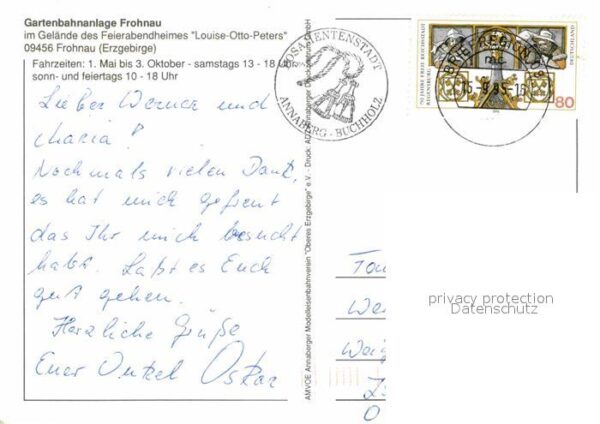 Gartenbahnanlage Frohnau
im Gelände des Feierabendheimes "Louise-Otto-Peters"
09456 Frohnau (Erzgebirge)
Fahrzeiten: 1. Mai bis 3. Oktober - samstags 13 - 18 Uhr
sonn- und feiertags 10 - 18 Uhr
Lieber Werner und
Maria!
Nochmals vielen Dank,
es hat mich gefreut
das Ihr mich besucht
habt. Laßt es Euch
gut gehen.
Herzliche Grüße
Euer Onkel Oskar
AMVOE Annaberger Modelleisenbahnverein "Oberes Erzgebirge" e.V. - Druck: Annaberger Druckzentrum GmbH
POSAMENTENSTADT
ANNABERG - BUCHHOLZ
BRIEFREGION
750 JAHRE FREIE REICHSSTADT
REGENSBURG
DEUTSCHLAND
80
privacy protection
Datenschutz